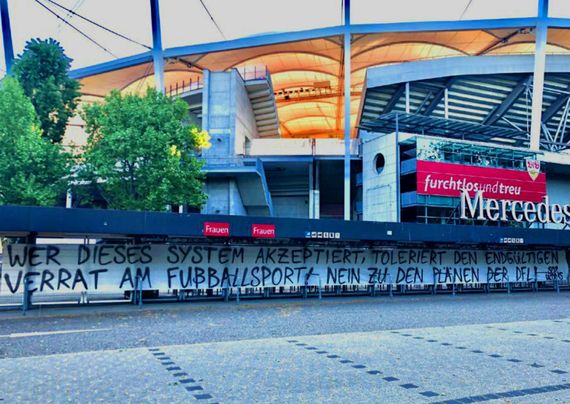 furchtlosundtreu
Mercedes
Frauen
Frauen
WER DIESES SYSTEM AKZEPTIERT, TOLERIERT DEN ENDGÜLTIGEN
VERRAT AM FUßBALLSPORT! NEIN ZU DEN PLÄNEN DER DFL!